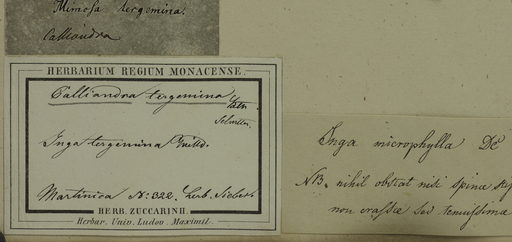 Mimosa tergemina.
Calliandra
HERBARIUM REGIUM MONACENSE.
Calliandra tergemina
Inga tergemina Willd.
Martinica No: 322. herb. Sieber.
HERB. ZUCCARINII.
Herbar. Univ. Ludov. Maximil.
Inga microphylla DC
NB. nihil obstat nisi spinae
non crassae sed tenuissimae